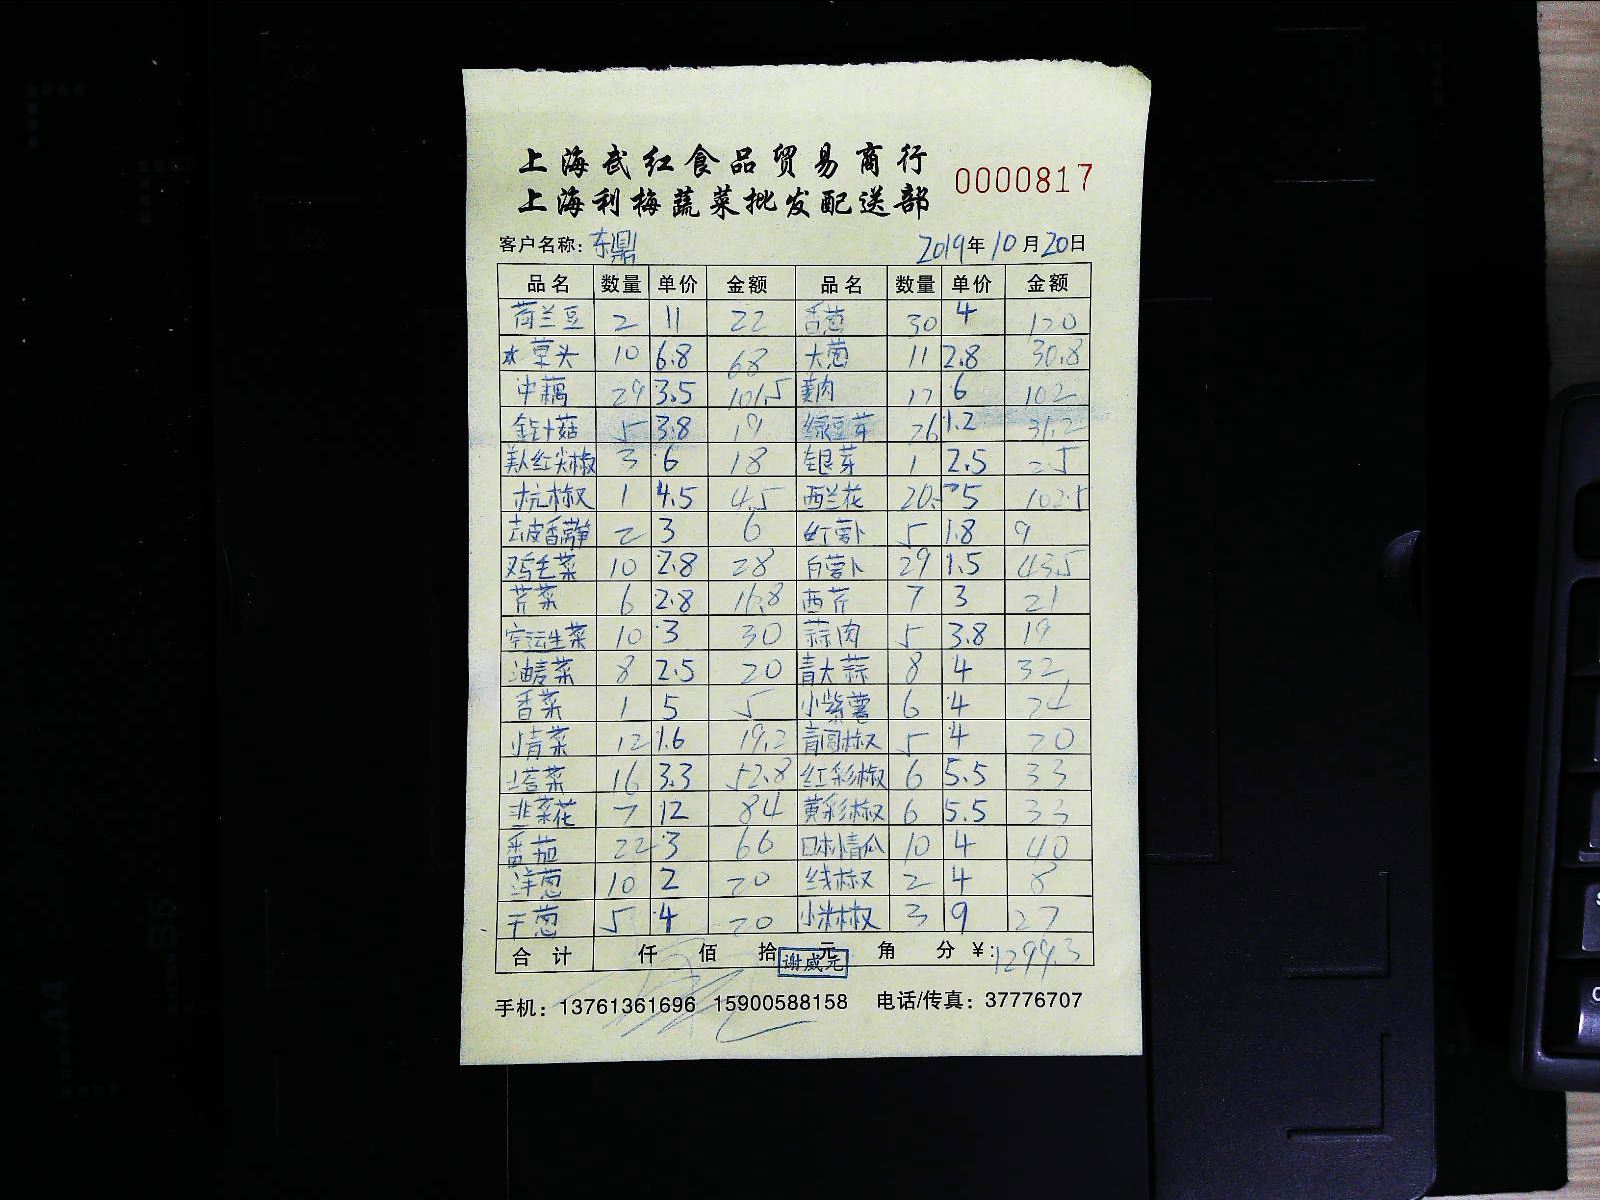 上海武红食品贸易商行
上海利梅蔬菜批发配送部
0000817
客户名称: 东鼎 2019年10月20日
品名 数量 单价 金额 品名 数量 单价 金额
荷兰豆 2 11 22 香葱 30 4 120
水草头 10 6.8 68 大葱 11 2.8 30.8
中藕 29 3.5 101.5 姜肉 17 6 102
金针菇 5 3.8 19 绿豆芽 26 1.2 31.2
美人红尖椒 3 6 18 银芽 1 2.5 2.5
杭椒 1 4.5 4.5 西兰花 20.5 5 102.5
去皮香莴笋 2 3 6 红萝卜 5 1.8 9
鸡毛菜 10 2.8 28 白萝卜 29 1.5 43.5
芹菜 6 2.8 16.8 西芹 7 3 21
生菜 10 3 30 蒜肉 5 3.8 19
油麦菜 8 2.5 20 青大蒜 8 4 32
香菜 1 5 5 小紫薯 6 4 24
青菜 12 1.6 19.2 青圆椒 5 4 20
塔菜 16 3.3 52.8 红彩椒 6 5.5 33
韭菜花 7 12 84 黄彩椒 6 5.5 33
番茄 22 3 66 日本青瓜 10 4 40
洋葱 10 2 20 线椒 2 4 8
干葱 5 4 20 小米椒 3 9 27
合计 仟 佰 拾 元 角 分 ¥: 1299.3
谢威元
手机: 13761361696 15900588158 电话/传真: 37776707